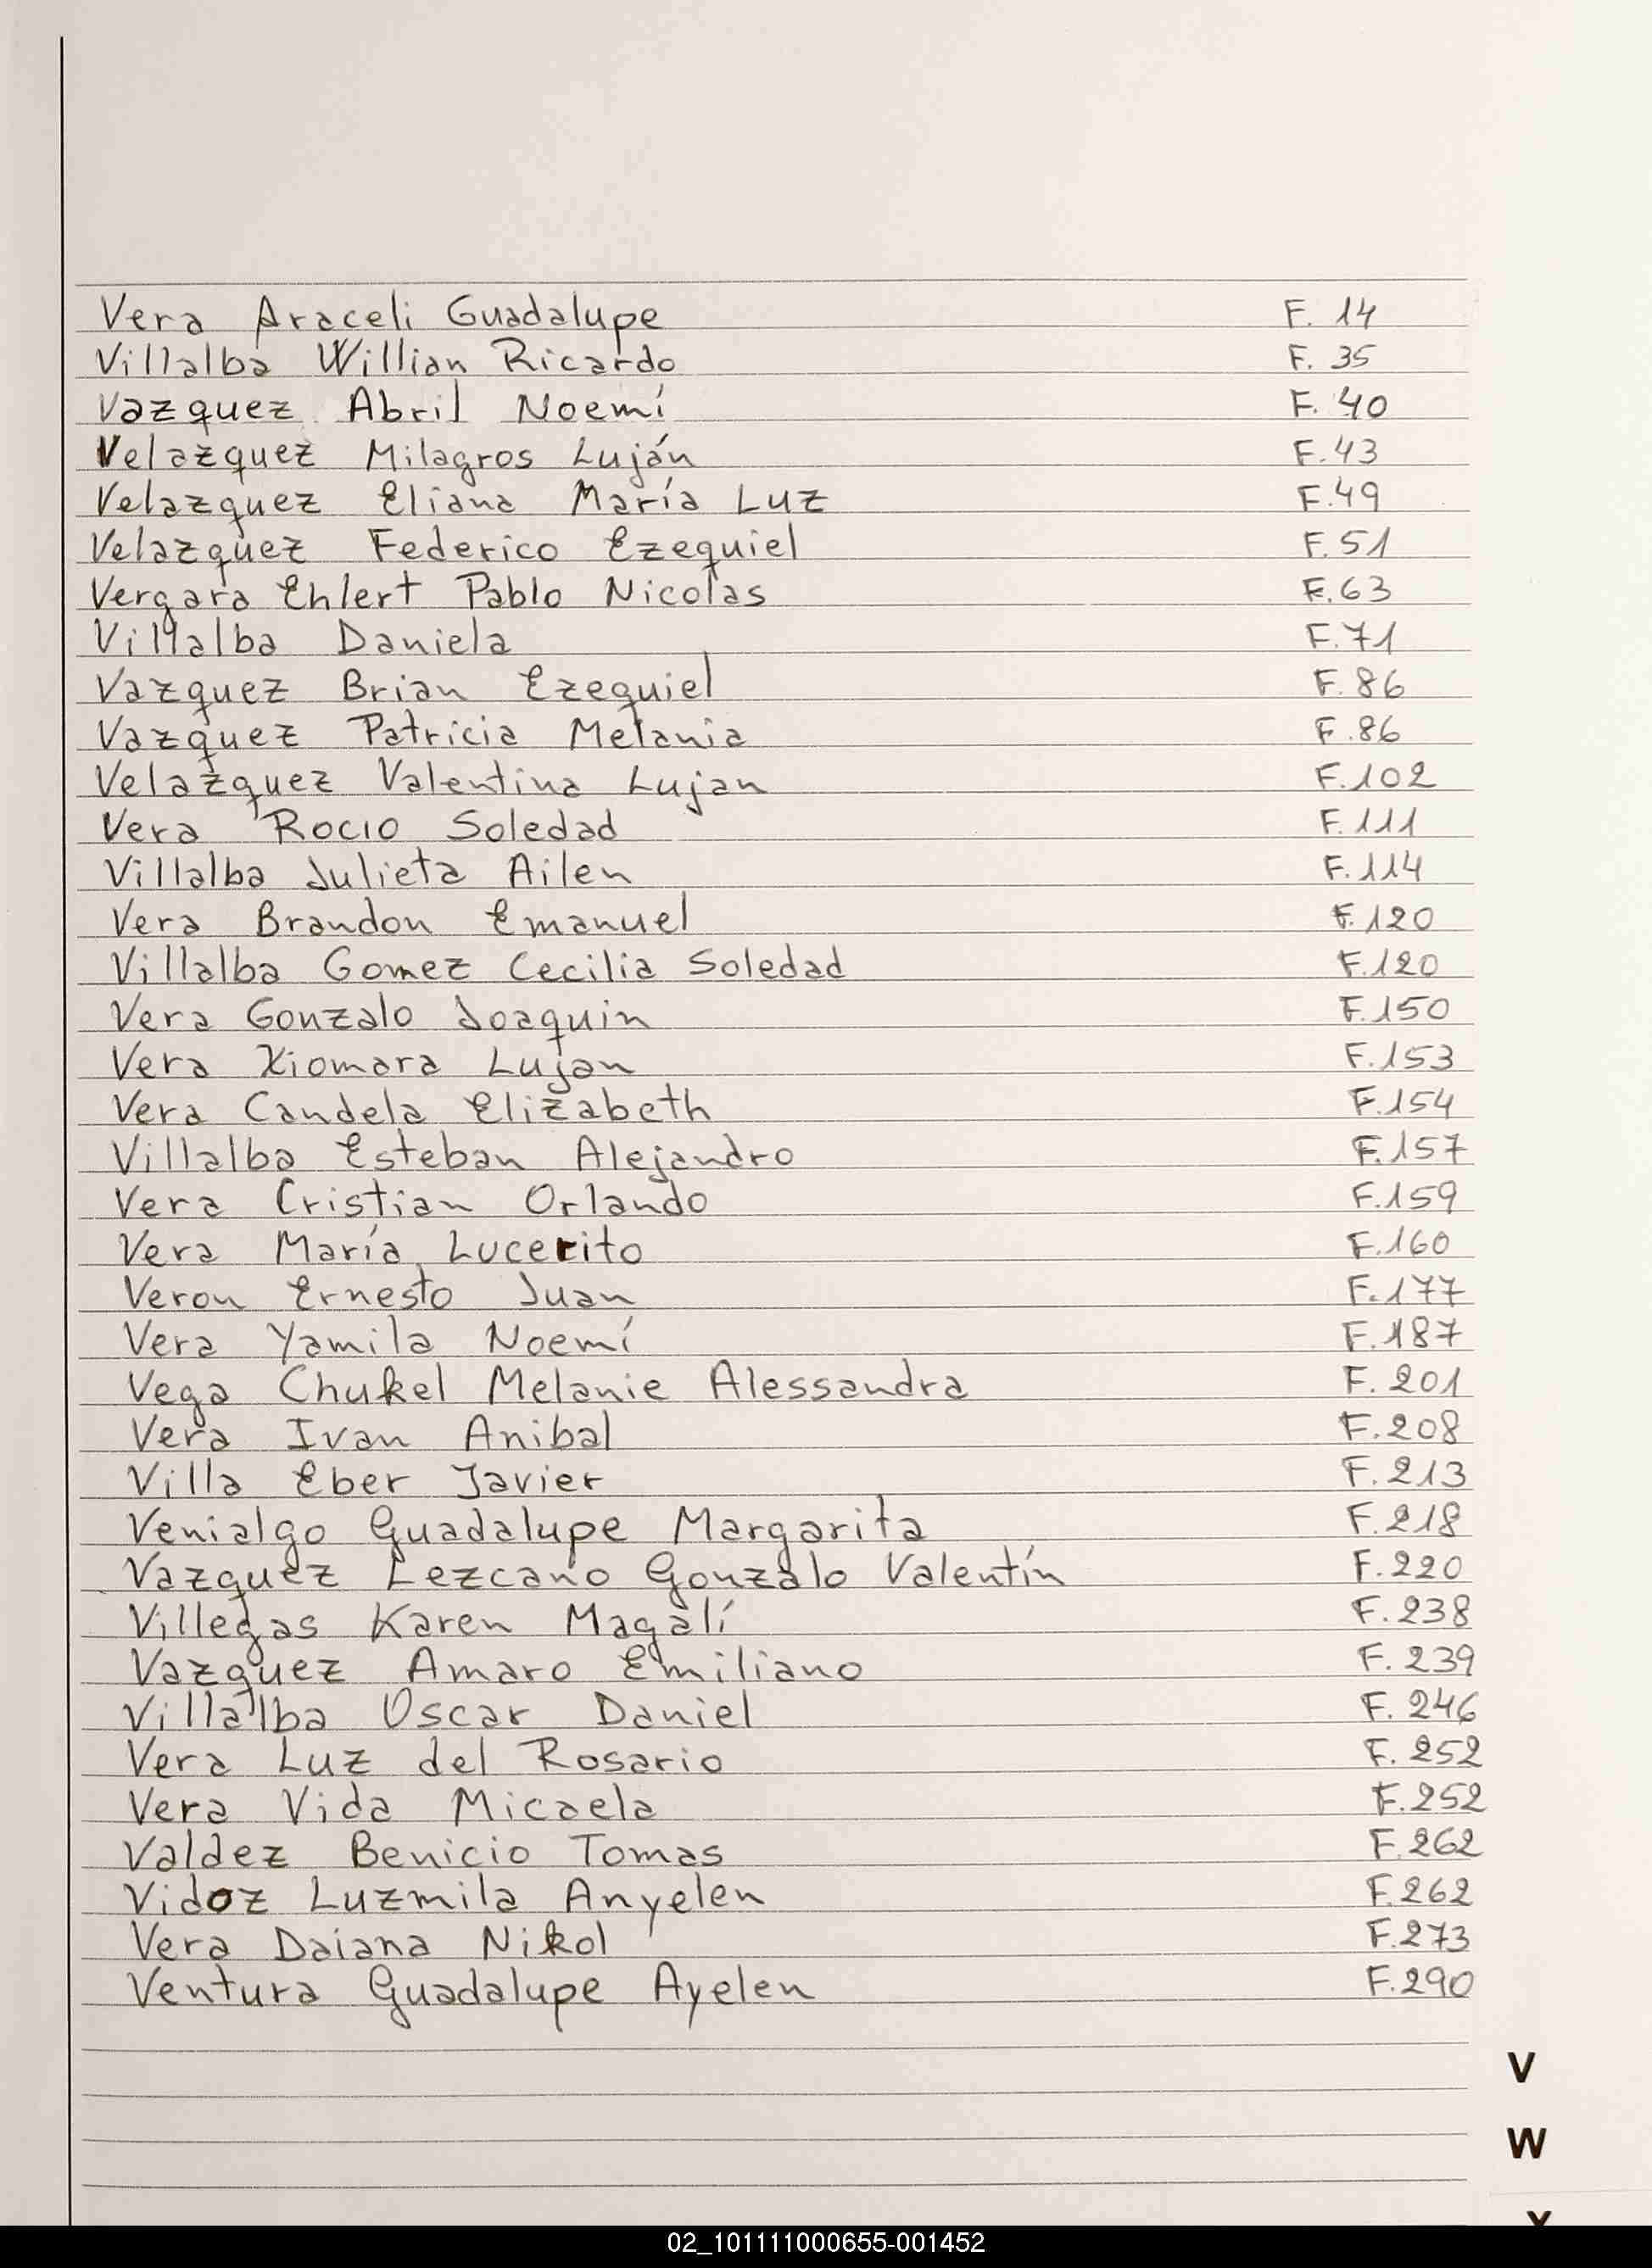 Vera Araceli Guadalupe F. 14
Villalba Willian Ricardo F. 35
Vazquez Abril Noemí F. 40
Velazquez Milagros Luján F.43
Velazquez Eliana María Luz F.49
Velazquez Federico Ezequiel F.51
Vergara Ehlert Pablo Nicolas F.63
Villalba Daniela F.71
Vazquez Brian Ezequiel F.86
Vazquez Patricia Melania F.86
Velazquez Valentina Lujan F.102
Vera Rocio Soledad F.111
Villalba Julieta Ailen F.114
Vera Brandon Emanuel F.120
Villalba Gomez Cecilia Soledad F.120
Vera Gonzalo Joaquin F.150
Vera Xiomara Lujan F.153
Vera Candela Elizabeth F.154
Villalba Esteban Alejandro F.157
Vera Cristian Orlando F.159
Vera María Lucerito F.160
Veron Ernesto Juan F.177
Vera Yamila Noemí F.187
Vega Chukel Melanie Alessandra F. 201
Vera Ivan Anibal F.208
Villa Eber Javier F.213
Venialgo Guadalupe Margarita F.218
Vazquez Lezcano Gonzalo Valentín F.220
Villegas Karen Magalí F.238
Vazquez Amaro Emiliano F. 239
Villalba Oscar Daniel F. 246
Vera Luz del Rosario F. 252
Vera Vida Micaela F.252
Valdez Benicio Tomas F.262
Vidoz Luzmila Anyelen F.262
Vera Daiana Nikol F.273
Ventura Guadalupe Ayelen F.290
V
W
X
02_101111000655-001452